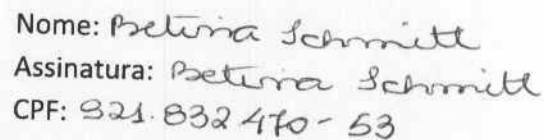 Nome: Betina Schmitt
Assinatura: Betina Schmitt
CPF: 921.832 470-53